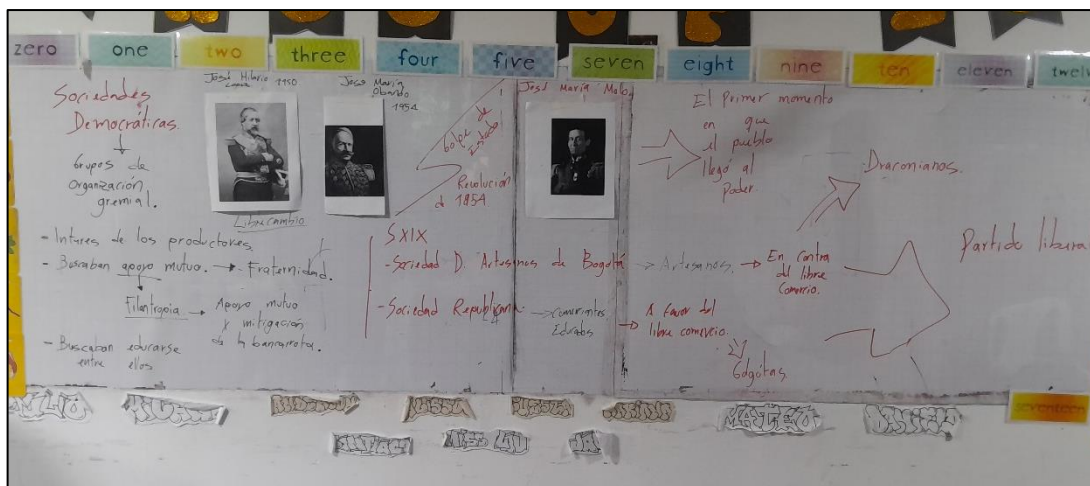 zero one two three four five seven eight nine ten eleven twelv
Sociedades
Democráticas.
Grupos de
Organización
gremial.
- Interes de los productores.
- Buscaban apoyo mutuo. → Fraternidad.
Filantropia → Apoyo mutuo
y mitigación
de la bancarrota.
- Buscaban educarse
entre ellos
José Hilario 1950
Lopez
José María
Obando
1954
Librecambio
Golpe de
Estado!
Revolución
de 1854
José María Melo
El primer momento
en que
el pueblo
llegó al
poder.
SXIX
- Sociedad D. Artesanos de Bogotá → Artesanos. → En contra
del libre
comercio.
- Sociedad Republicana → comerciantes → A favor del
libre comercio.
Gólgotas
Draconianos.
Partido libera
MATEO
DANIEL
seventeen